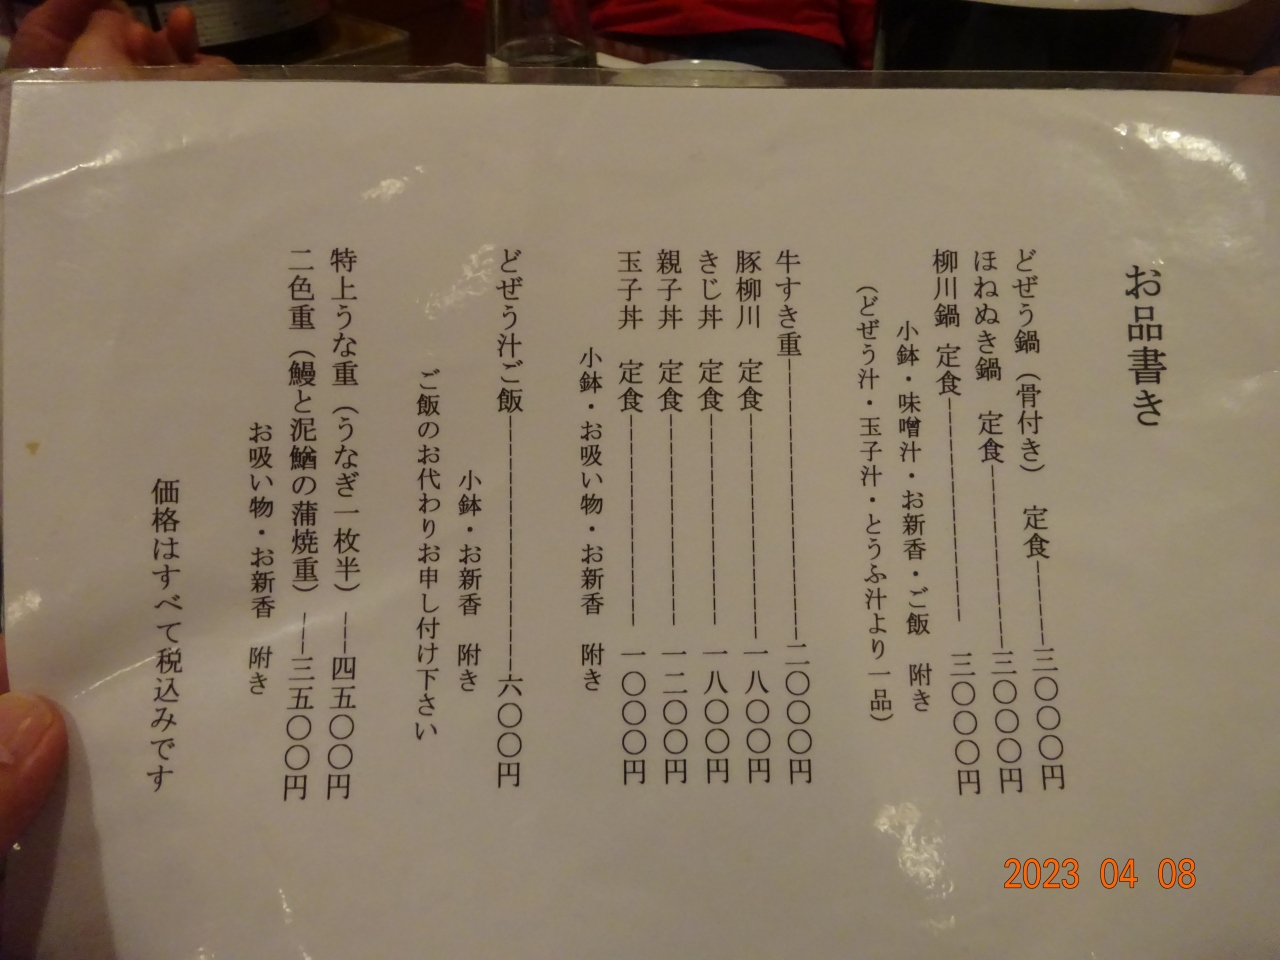 お品書き
どぜう鍋（骨付き） 定食――――三〇〇〇円
ほねぬき鍋 定食――――――三〇〇〇円
柳川鍋 定食――――――――三〇〇〇円
小鉢・味噌汁・お新香・ご飯 附き
（どぜう汁・玉子汁・とうふ汁より一品）
牛すき重――――――――――二〇〇〇円
豚柳川 定食――――――――一八〇〇円
きじ丼 定食――――――――一八〇〇円
親子丼 定食――――――――一二〇〇円
玉子丼 定食――――――――一〇〇〇円
小鉢・お吸い物・お新香 附き
どぜう汁ご飯―――――――――六〇〇円
小鉢・お新香 附き
ご飯のお代わりお申し付け下さい
特上うな重（うなぎ一枚半）――四五〇〇円
二色重（鰻と泥鰌の蒲焼重）――三五〇〇円
お吸い物・お新香 附き
価格はすべて税込みです
2023 04 08